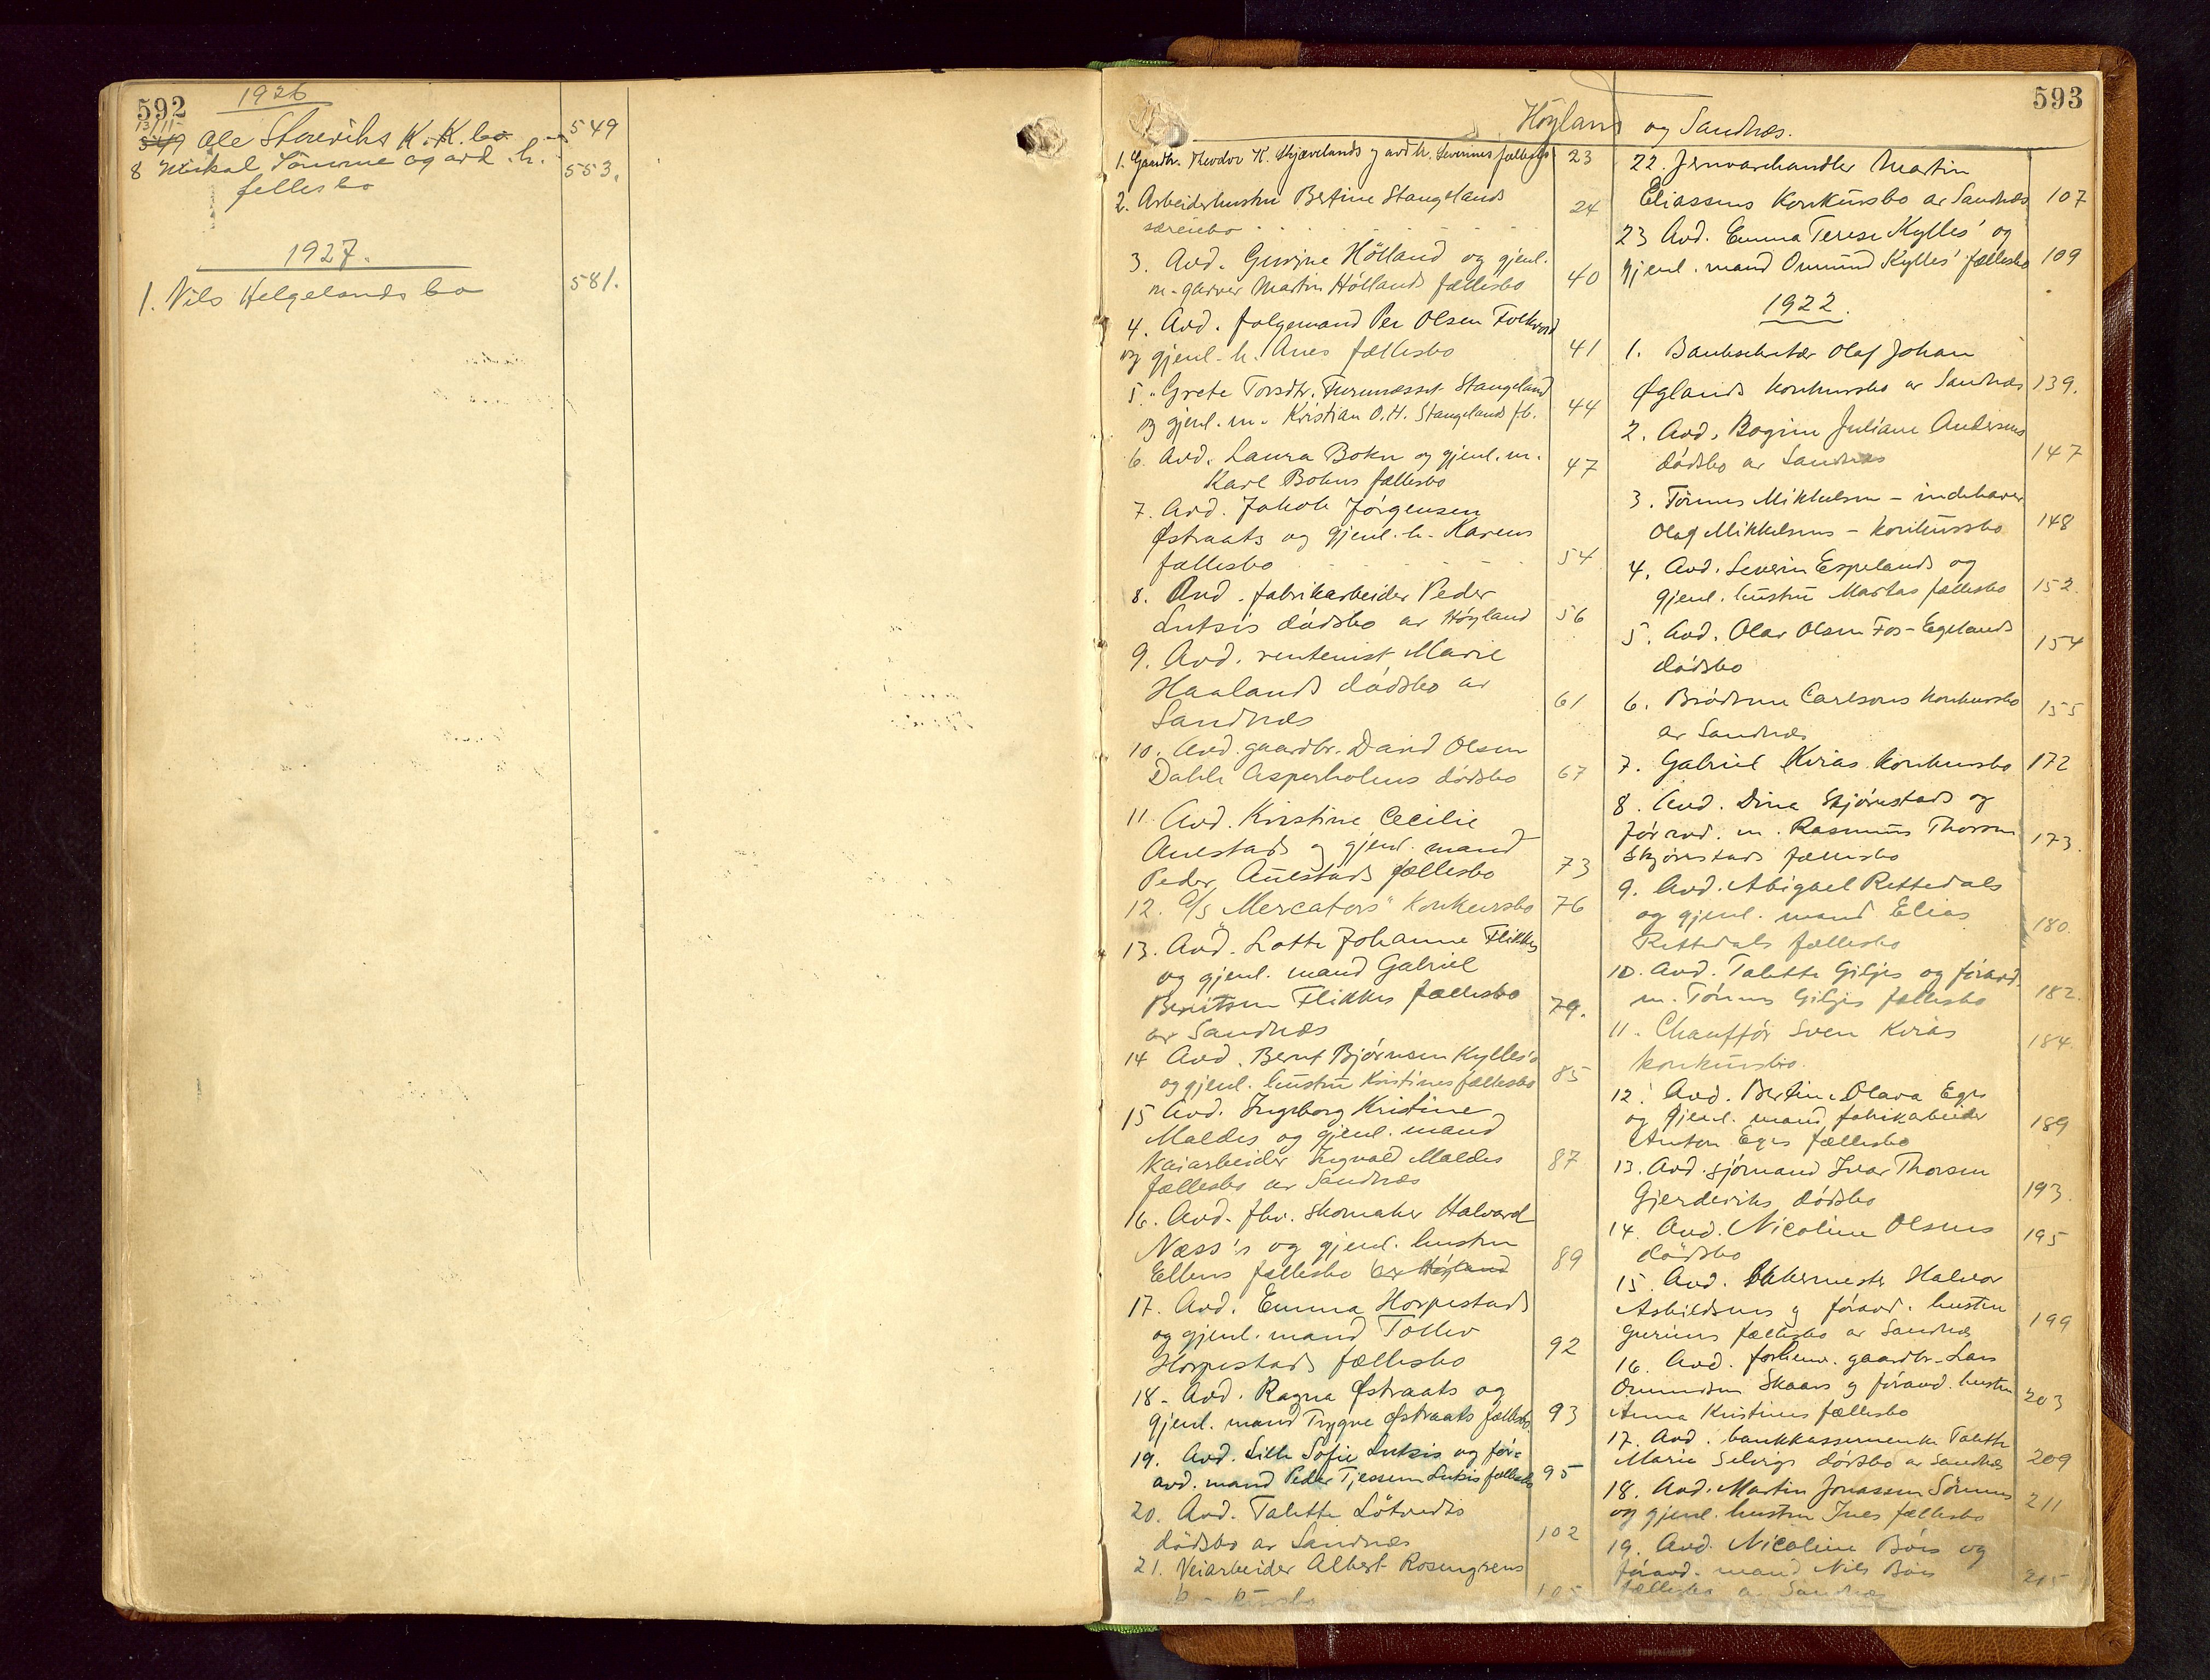 592
1926
13/11
Ole Storviks K.K.bo 549
8 Mikal Tømme og avd. h. 553.
fellesbo
1927.
1. Nils Helgelands bo 581.
593
Høyland og Sandnæs.
1. Gaardbr. Theodor K. Skjævelands og avd. h. Severines fællesbo 23
2. Arbeiderhustru Bertine Stangelands
særeiebo 24
3. Avd. Gurine Hölland og gjenl.
m. garver Martin Höllands fællesbo 40
4. Avd. følgemand Per Olsen Folkvord
og gjenl. h. Anes fællesbo 41
5. " Grete Torsdtr. Stangeland
og gjenl. m. Kristian O.H. Stangelands fb. 44
6. Avd. Laura Bokn og gjenl. m.
Karl Bokns fællesbo 47
7. Avd. Jakob Jörgensen
Østraats og gjenl. h. Karens
fællesbo 54
8. Avd. fabrikarbeider Peder
Lutsis dödsbo av Höyland 56
9. Avd. rentenist Marie
Haalands dödsbo av
Sandnæs 61
10. Avd. gaardbr. David Olsen
Dahle Asperholens dödsbo 67
11. Avd. Kirstine Cecilie
Auestads og gjenl. mand
Peder Auestads fællesbo 73
12. A/S "Mercators" konkursbo 76
13. Avd. Lotte Johanne Flikkes
og gjenl. mand Gabriel
Berntsen Flikkes fællesbo
av Sandnæs 79.
14 Avd. Bernt Björnsen Kylles's
og gjenl. hustru Kristines fællesbo 85
15 Avd. Ingeborg Kristine
Maldes og gjenl. mand
Kaiarbeider Ingvald Maldes
fællesbo av Sandnæs 87
16. Avd. fhv. skomaker Halvard
Næss's og gjenl. hustru
Ellens fællesbo av Höyland 89
17. Avd. Emma Horpestads
og gjenl. mand Tollev
Horpestads fællesbo 92
18. Avd. Ragna Østraats og
gjenl. mand Trygve Østraats fællesbo. 93
19. Avd. Sille Sofie Lutsis og før-
avd. mand Peder Tjessem Lutsis fællesbo 95
20. Avd. Talette Lötvedts
dödsbo av Sandnæs 102
21. Veiarbeider Albert Rosengrens
105
22. Jernvarehandler Martin
Eliassens Konkursbo av Sandnæs 107
23 Avd. Emma Terese Kylles' og
gjenl. mand Ommund Kylles' fællesbo 109
1922.
1. Banksekretær Olaf Johan
Øglands konkursbo av Sandnæs 139.
2. Avd. Bogine Juliane Andersens
dödsbo av Sandnæs 147
3. Tönnes Mikkelsen - indehaver
Olaf Mikkelsens - konkursbo 148
4. Avd. Severin Espelands og
gjenl. hustru Martas fællesbo 152.
5. Avd. Olav Olsen Fos-Egelands
dödsbo 154
6. Brödrene Carlsons konkursbo
av Sandnæs 155
7. Gabriel Kvias konkursbo 172
8. Avd. Dina Skjörestads og
för avd. m. Rasmus Thorsen
Skjörestads fællesbo 173.
9. Avd. Abigael Rettedals
og gjenl. mand Elias
Rettedals fællesbo 180.
10. Avd. Talette Giljes og föravd.
m. Tönnes Giljes fællesbo 182.
11. Chauffør Sven Kvias
konkursbo. 184.
12. Avd. Bertine Olava Eges
og gjenl. mand fabrikarbeider
Anton Eges fællesbo 189
13. Avd. sjömand Ivar Thorsen
Gjerdeviks dödsbo 193.
14. Avd. Nicoline Olsens
dödsbo 195
15. Avd. Halvor
Asbildsens og föravd. hustru
Gurines fællesbo av Sandnæs 199
16. Avd. forhenv. gaardbr. Lars
Ommundsen Skaars og föravd. hustru
Anna Kristines fællesbo 203
17. Avd. bankkassererenke Talette
Marie Selvigs dödsbo av Sandnæs 209
18. Avd. Martin Jonassen Sörnes
og gjenl. hustru Ines fællesbo 211
19. Avd. Nicoline Böes og
föravd. mand Nils Böes
fællesbo av Sandnæs 215